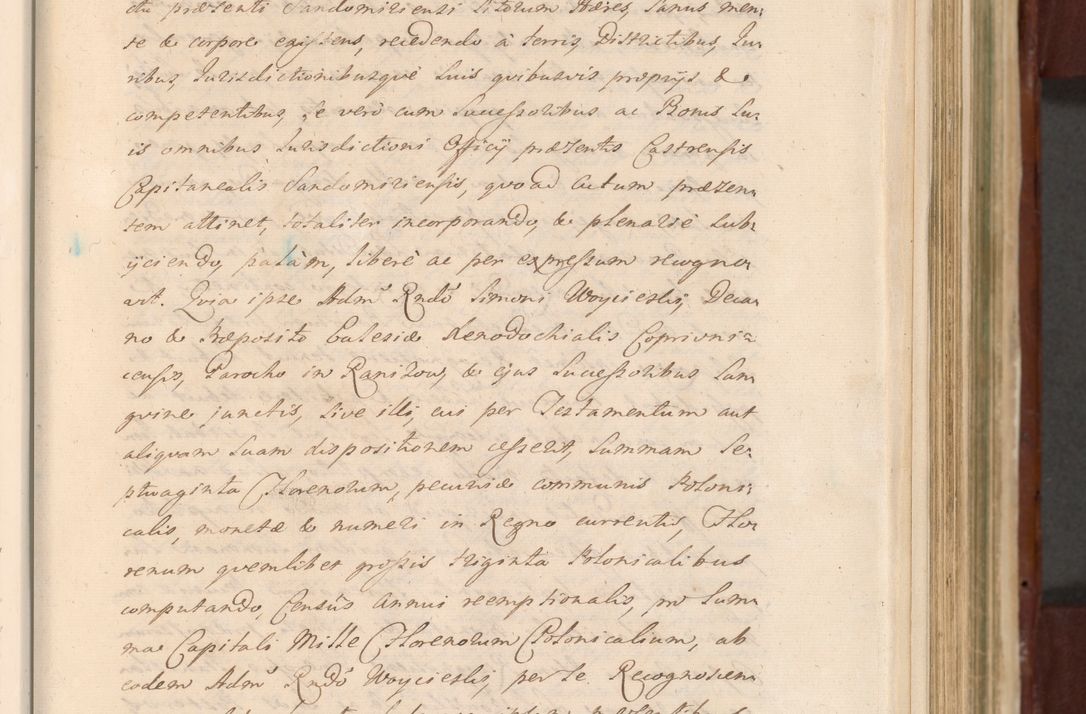 ctu præsenti Sandomiriensi Sitorum Hæres, Sanus men:
te & corpore existens, recedendo à terris, Districtibus, Iu:
ribus, Jurisdictionibusquè Suis quibusvis proprijs &
competentibus, Se verò cum Successoribus ac Bonis Su:
is omnibus Jurisdictioni Officij præsentis Castrensis
Capitanealis Sandomiriensis, quo ad Actum præsen:
tem attinet, totaliter incorporando, & plenariè Sub:
ijciendo, palàm, liberè ac per expressum recogno:
vit. Quia ipse Admᵐ Rndo Simoni Woycieski, Deca:
no & Præposito Ecclesiæ Xenodochialis Coprivni:
censis, Parocho in Ranizow, & ejus Successoribus San:
gvine junctis, Sive illi, cui per Testamentum aut
aliqvam Suam dispositionem cesserit, Summam Se:
ptuaginta Florenorum, pecuniæ communis Poloni:
calis, monetæ & numeri in Regno currentis, Flo:
renum qvemlibet grossis triginta Polonicalibus
computando, Censûs annui reemptionalis, pro Sum:
ma Capitali Mille Florenorum Polonicalium, ab
eodem Admᵐ Rndo Woycieski, per Se Recognoscen: